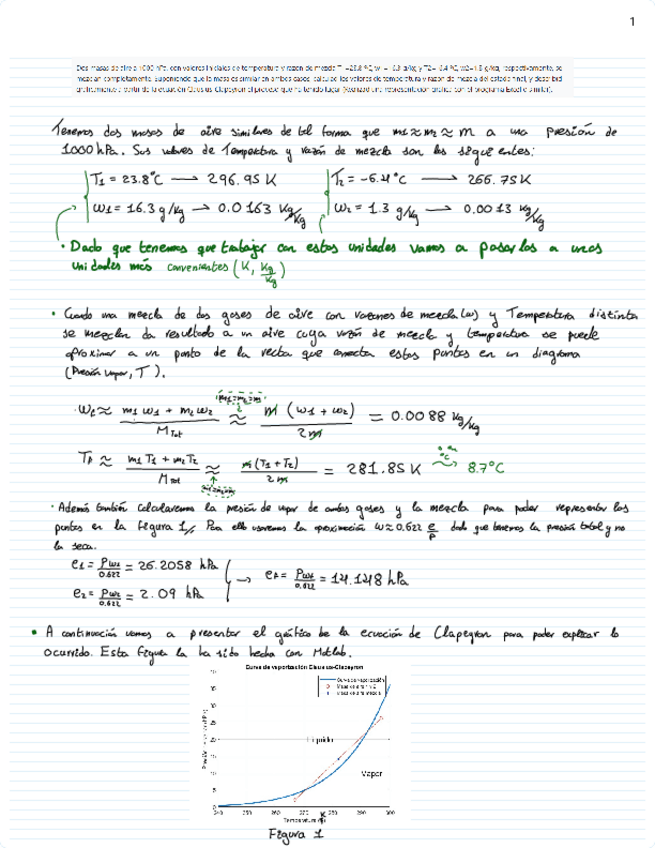 1
Dos masas de aire a 1000 hPa, con valores iniciales de temperatura y razón de mezcla T1=23.8 ºC, w1= 16.3 g/kg y T2=-6.4 ºC, w2=1.3 g/kg, respectivamente, se
mezclan completamente. Suponiendo que la masa es similar en ambos casos, calcular los valores de temperatura y razón de mezcla del estado final, y describid
gráficamente a partir de la ecuación Clausius-Clapeyron el proceso que ha tenido lugar (Realizad una representación gráfica con el programa Excel o similar).
Tenemos dos masas de aire similares de tal forma que m1 ≈ m2 ≈ m a una presión de
1000 hPa. Sus valores de Temperatura y razón de mezcla son los siguientes:
T1 = 23.8°C → 296.95 K T2 = -6.4°C → 266.75 K
ω1 = 16.3 g/kg → 0.0163 kg/kg ω2 = 1.3 g/kg → 0.0013 kg/kg
· Dado que tenemos que trabajar con estas unidades vamos a pasarlos a unas
unidades más convenientes (K, kg/kg)
· Cuando una mezcla de dos gases de aire con razones de mezcla (ω) y Temperatura distinta
se mezclan da resultado a un aire cuya razón de mezcla y temperatura se puede
aproximar a un punto de la recta que conecta estos puntos en un diagrama
(Presión vapor, T).
m1=m2=m
ωf ≈ m1 ω1 + m2 ω2 / MTot ≈ m (ω1 + ω2) / 2m = 0.0088 kg/kg
Tf ≈ m1 T1 + m2 T2 / MTot ≈ m (T1 + T2) / 2m = 281.85 K °C → 8.7°C
m1=m2=m
· Además también calcularemos la presión de vapor de ambos gases y la mezcla para poder representar los
puntos en la figura 1. Para ello usaremos la aproximación ω ≈ 0.622 e/p dado que tenemos la presión total y no
la seca.
e1 = Pω1/0.622 = 26.2058 hPa → ef = Pωf/0.622 = 14.148 hPa
e2 = Pω2/0.622 = 2.09 hPa
· A continuación vamos a presentar el gráfico de la ecuación de Clapeyron para poder explicar lo
ocurrido. Esta figura la ha sido hecha con Matlab.
Curva de vaporización Clausius-Clapeyron
Curva de vaporización
Líquido
Vapor
240 250 260 270 280 290 300
Temperatura K
Figura 1